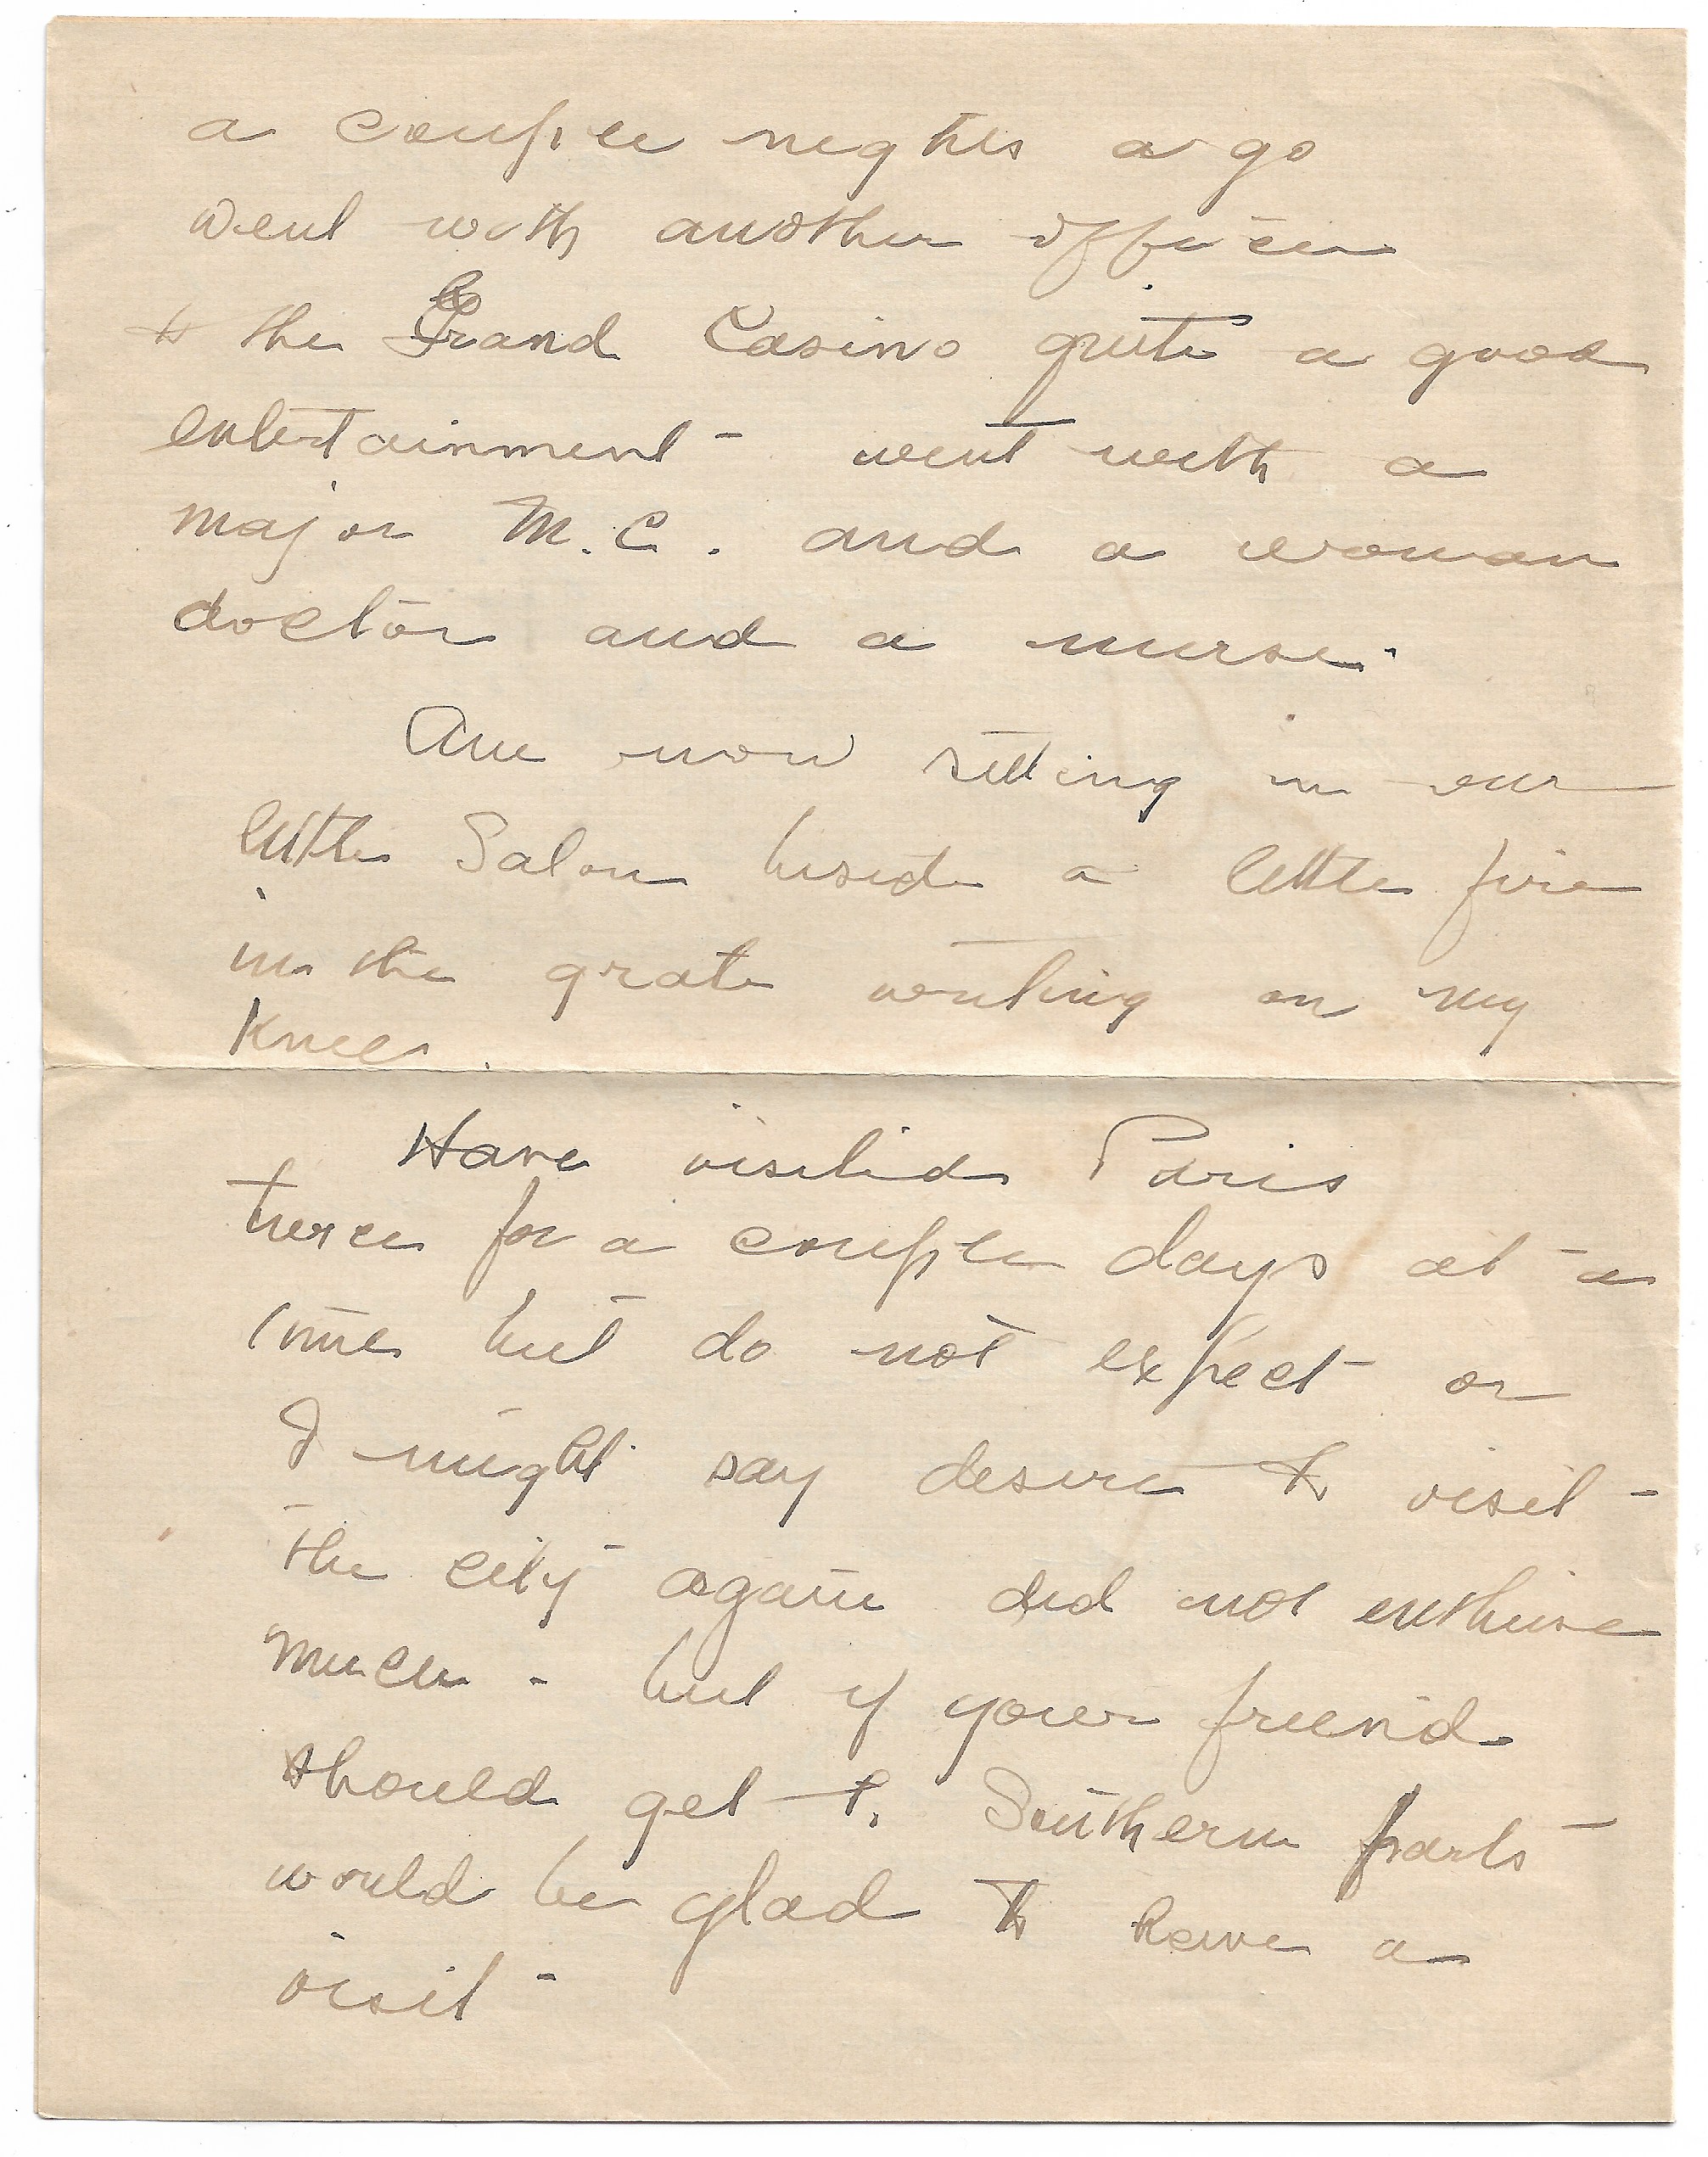 a couple nights ago
went with another officer
to the Grand Casino quite a good
entertainment - went with a
major M.C. and a woman
doctor and a nurse.
Am now sitting in our
little Salon beside a little fire
in the grate writing on my
Knee.
Have visited Paris
twice for a couple days at a
time but do not expect or
I might say desire to visit
the city again did not enthuse
much - but if your friend
should get to Southern parts
would be glad to have a
visit -